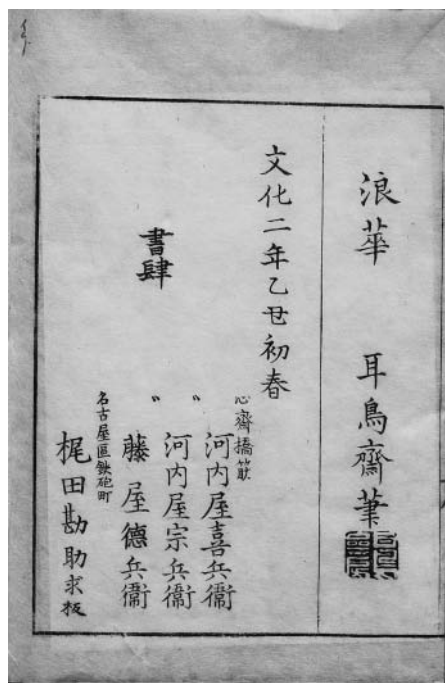 浪華　耳鳥齋筆
文化二年乙丑初春
書肆
心齋橋筋
河内屋喜兵衞
〃
河内屋宗兵衞
〃
藤屋德兵衞
名古屋區鉄砲町
梶田勘助求板